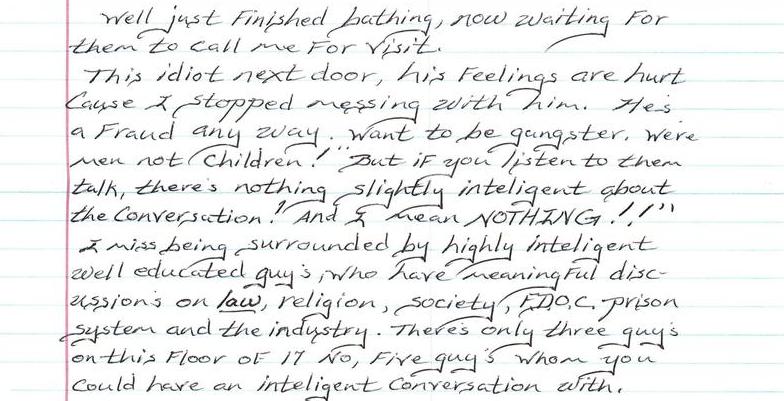 Well just Finished bathing, now waiting For
them to call me For Visit.
This idiot next door, his Feelings are hurt
Cause I stopped messing with him. He's
a Fraud any way. Want to be gangster. Were
men not Children! But iF you listen to them
talk, there's nothing slightly inteligent about
the Conversation! And I mean NOTHING!!!"
I miss being surrounded by highly inteligent
well educated guy's, who have meaningFul disc-
ussion's on law, religion, society, F.D.O.C. prison
system and the industry. There's only three guy's
on this Floor oF 17 No, Five guy's whom you
Could have an inteligent Conversation with.